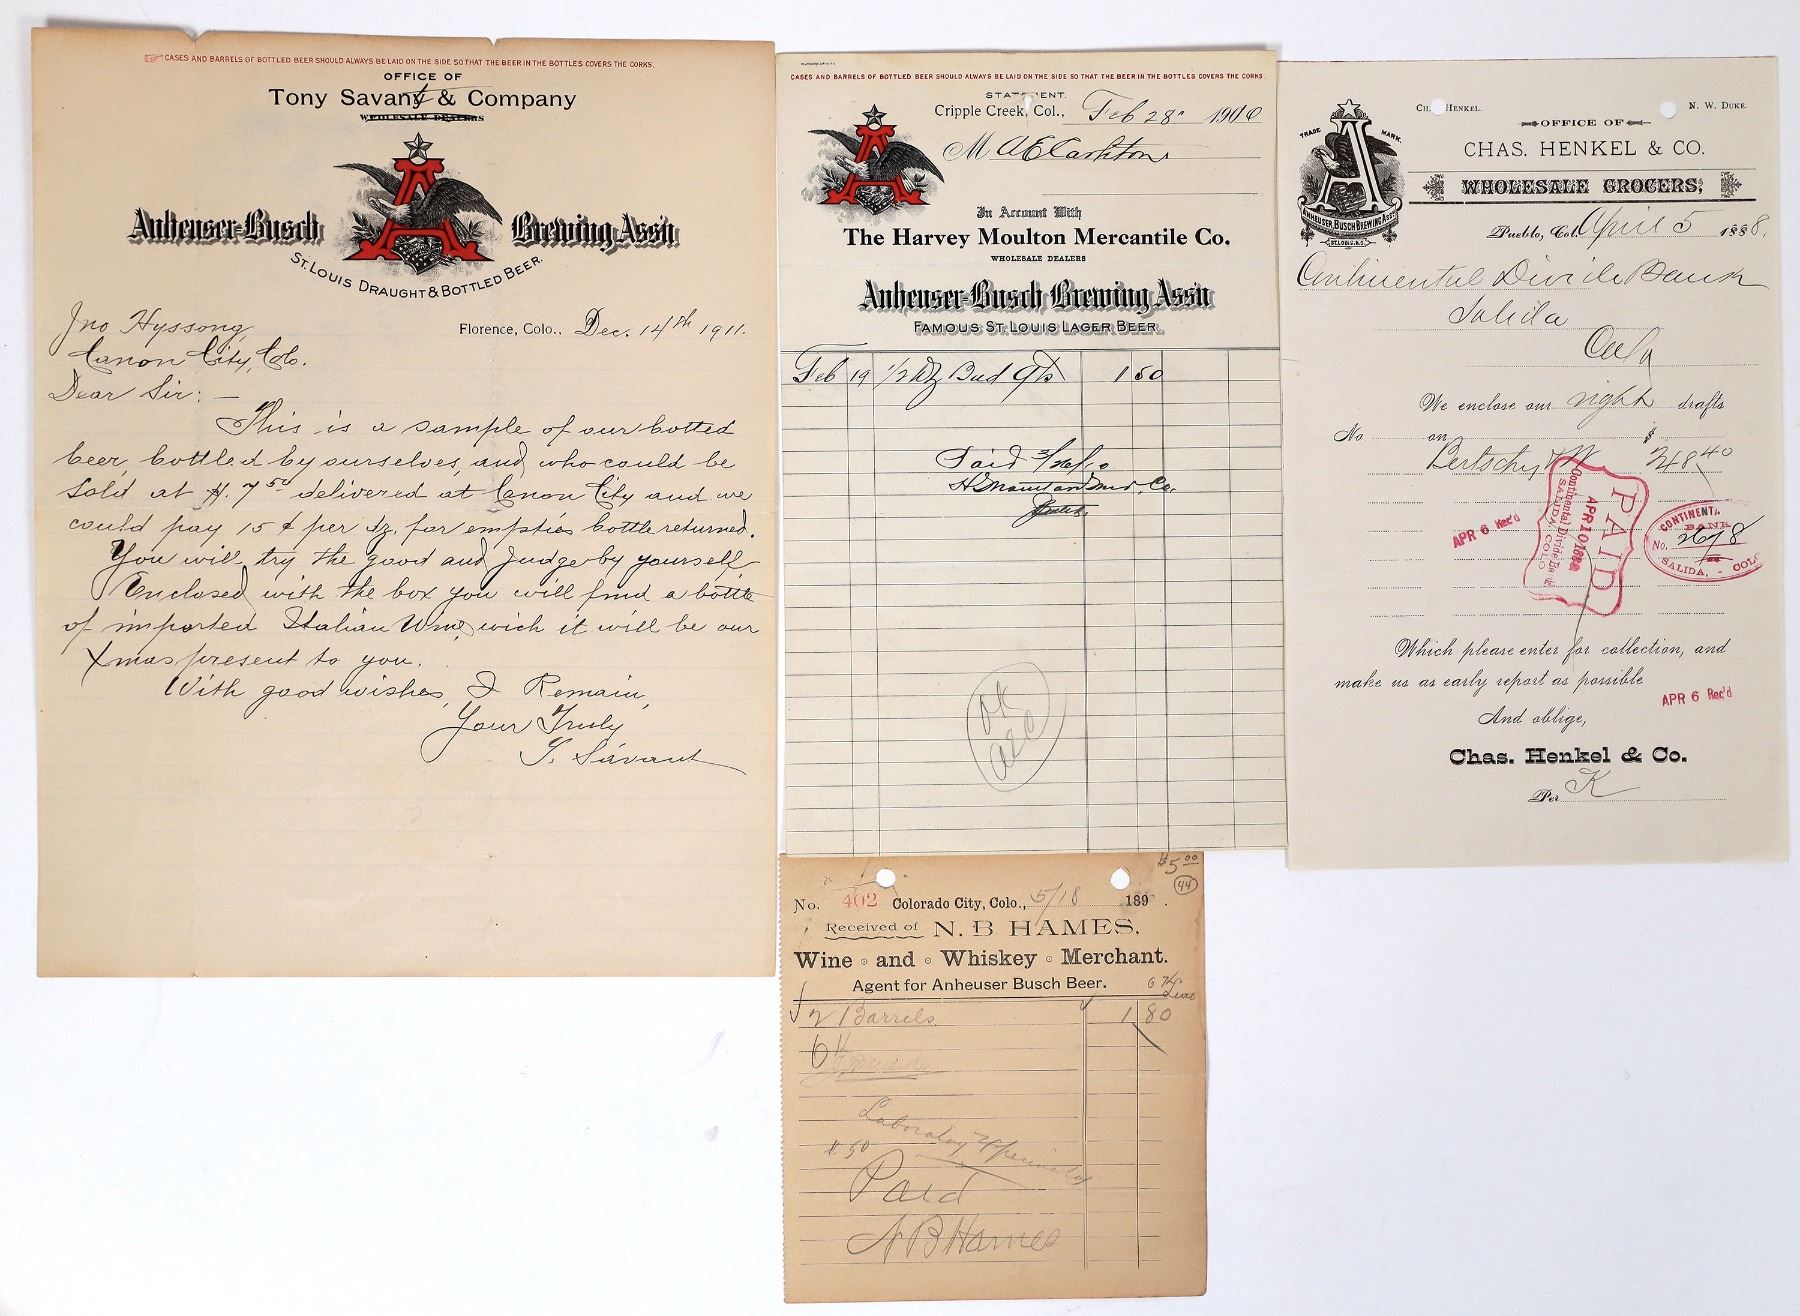 ☞ CASES AND BARRELS OF BOTTLED BEER SHOULD ALWAYS BE LAID ON THE SIDE SO THAT THE BEER IN THE BOTTLES COVERS THE CORKS.
OFFICE OF
Tony Savant & Company
WHOLESALE DEALERS
Anheuser-Busch Brewing Ass'n
ST. LOUIS DRAUGHT & BOTTLED BEER.
Jno Hyssong, Florence, Colo., Dec. 14th 1911.
Canon City, Colo.
Dear Sir: —
This is a sample of our botted
beer, bottled by ourselves, and who could be
sold at $7.50 delivered at Canon City and we
could pay 15 ¢ per dz. for empties bottle returned.
You will try the good and judge by yourself
Enclosed with the box you will find a bottle
of imported Italian Wine, wich it will be our
Xmas present to you.
With good wishes, I Remain,
Your Truly
T. Savant
CASES AND BARRELS OF BOTTLED BEER SHOULD ALWAYS BE LAID ON THE SIDE SO THAT THE BEER IN THE BOTTLES COVERS THE CORKS.
STATEMENT.
Cripple Creek, Col., Feb 28" 1910
M A E Carlton
In Account With
The Harvey Moulton Mercantile Co.
WHOLESALE DEALERS
Anheuser-Busch Brewing Ass'n
FAMOUS ST. LOUIS LAGER BEER.
Feb 19 1/2 dz Bud Qts 1 50
Paid 3/26/10
Co.
OK
AEC
CH HENKEL. N. W. DUKE.
OFFICE OF
CHAS. HENKEL & CO.
WHOLESALE GROCERS,
TRADE MARK.
A
ANHEUSER BUSCH BREWING ASS'N
ST. LOUIS, MO.
Pueblo, Col. April 5 1888.
Continental Divide Bank
Salida
Colo
We enclose our sight drafts
No on $
Bertschy & W 348 40
PAID
APR 10 1888
Continental Divide Bank
SALIDA COLO
APR 6 Rec'd
CONTINENTAL
BANK
No. 2678
SALIDA, - COLO
Which please enter for collection, and
make us as early report as possible
APR 6 Rec'd
And oblige,
Chas. Henkel & Co.
Per K
$5.00
44
No. 402 Colorado City, Colo., 5/18 189 .
Received of N. B HAMES,
Wine and Whiskey Merchant.
Agent for Anheuser Busch Beer.
2 Barrels 1 80
Laboratory
$ .50
Paid
N B Hames